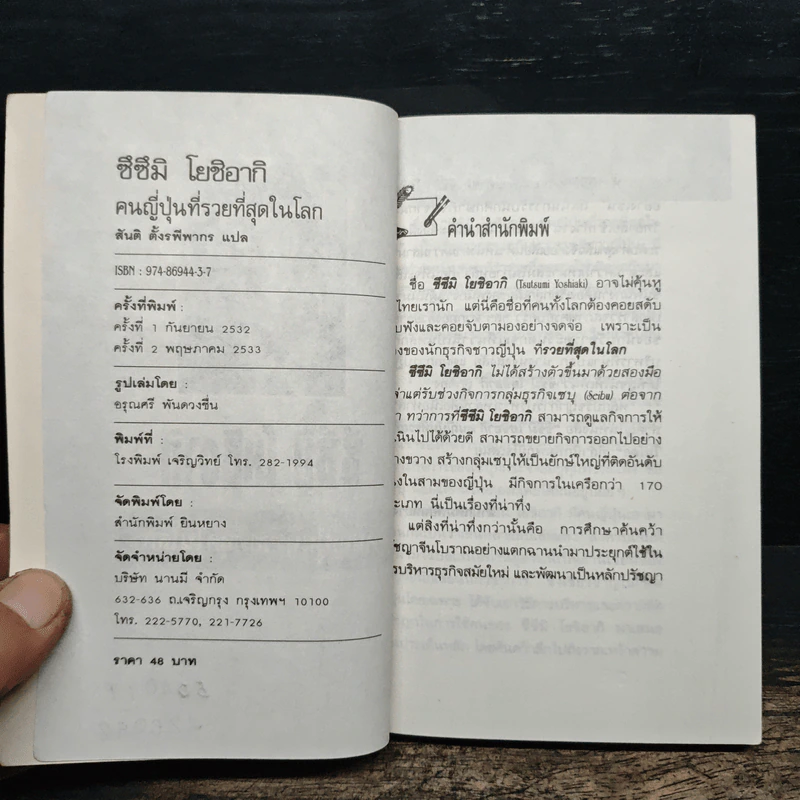 ซึซึมิ โยชิอากิ
คนญี่ปุ่นที่รวยที่สุดในโลก
สันติ ตั้งรพีพากร แปล
ISBN : 974-86944-3-7
ครั้งที่พิมพ์ :
ครั้งที่ 1 กันยายน 2532
ครั้งที่ 2 พฤษภาคม 2533
รูปเล่มโดย :
อรุณศรี พันดวงชื่น
พิมพ์ที่ :
โรงพิมพ์ เจริญวิทย์ โทร. 282-1994
จัดพิมพ์โดย :
สำนักพิมพ์ ยินหยาง
จัดจำหน่ายโดย :
บริษัท นานมี จำกัด
632-636 ถ.เจริญกรุง กรุงเทพฯ 10100
โทร. 222-5770, 221-7726
ราคา 48 บาท
คำนำสำนักพิมพ์
ชื่อ ซึซึมิ โยชิอากิ (Tsutsumi Yoshiaki) อาจไม่คุ้นหู
ไทยเรานัก แต่นี่คือชื่อที่คนทั้งโลกต้องคอยสดับ
บฟังและคอยจับตามองอย่างจดจ่อ เพราะเป็น
องของนักธุรกิจชาวญี่ปุ่น ที่รวยที่สุดในโลก
ซึซึมิ โยชิอากิ ไม่ได้สร้างตัวขึ้นมาด้วยสองมือ
ล่าแต่รับช่วงกิจการกลุ่มธุรกิจเซบุ (Seibu) ต่อจาก
า ทว่าการที่ซึซึมิ โยชิอากิ สามารถดูแลกิจการให้
เนินไปได้ด้วยดี สามารถขยายกิจการออกไปอย่าง
างขวาง สร้างกลุ่มเซบุให้เป็นยักษ์ใหญ่ที่ติดอันดับ
นึ่งในสามของญี่ปุ่น มีกิจการในเครือกว่า 170
ะเภท นี่เป็นเรื่องที่น่าทึ่ง
แต่สิ่งที่น่าทึ่งกว่านั้นคือ การศึกษาค้นคว้า
ัชญาจีนโบราณอย่างแตกฉานนำมาประยุกต์ใช้ใน
รบริหารธุรกิจสมัยใหม่ และพัฒนาเป็นหลักปรัชญา